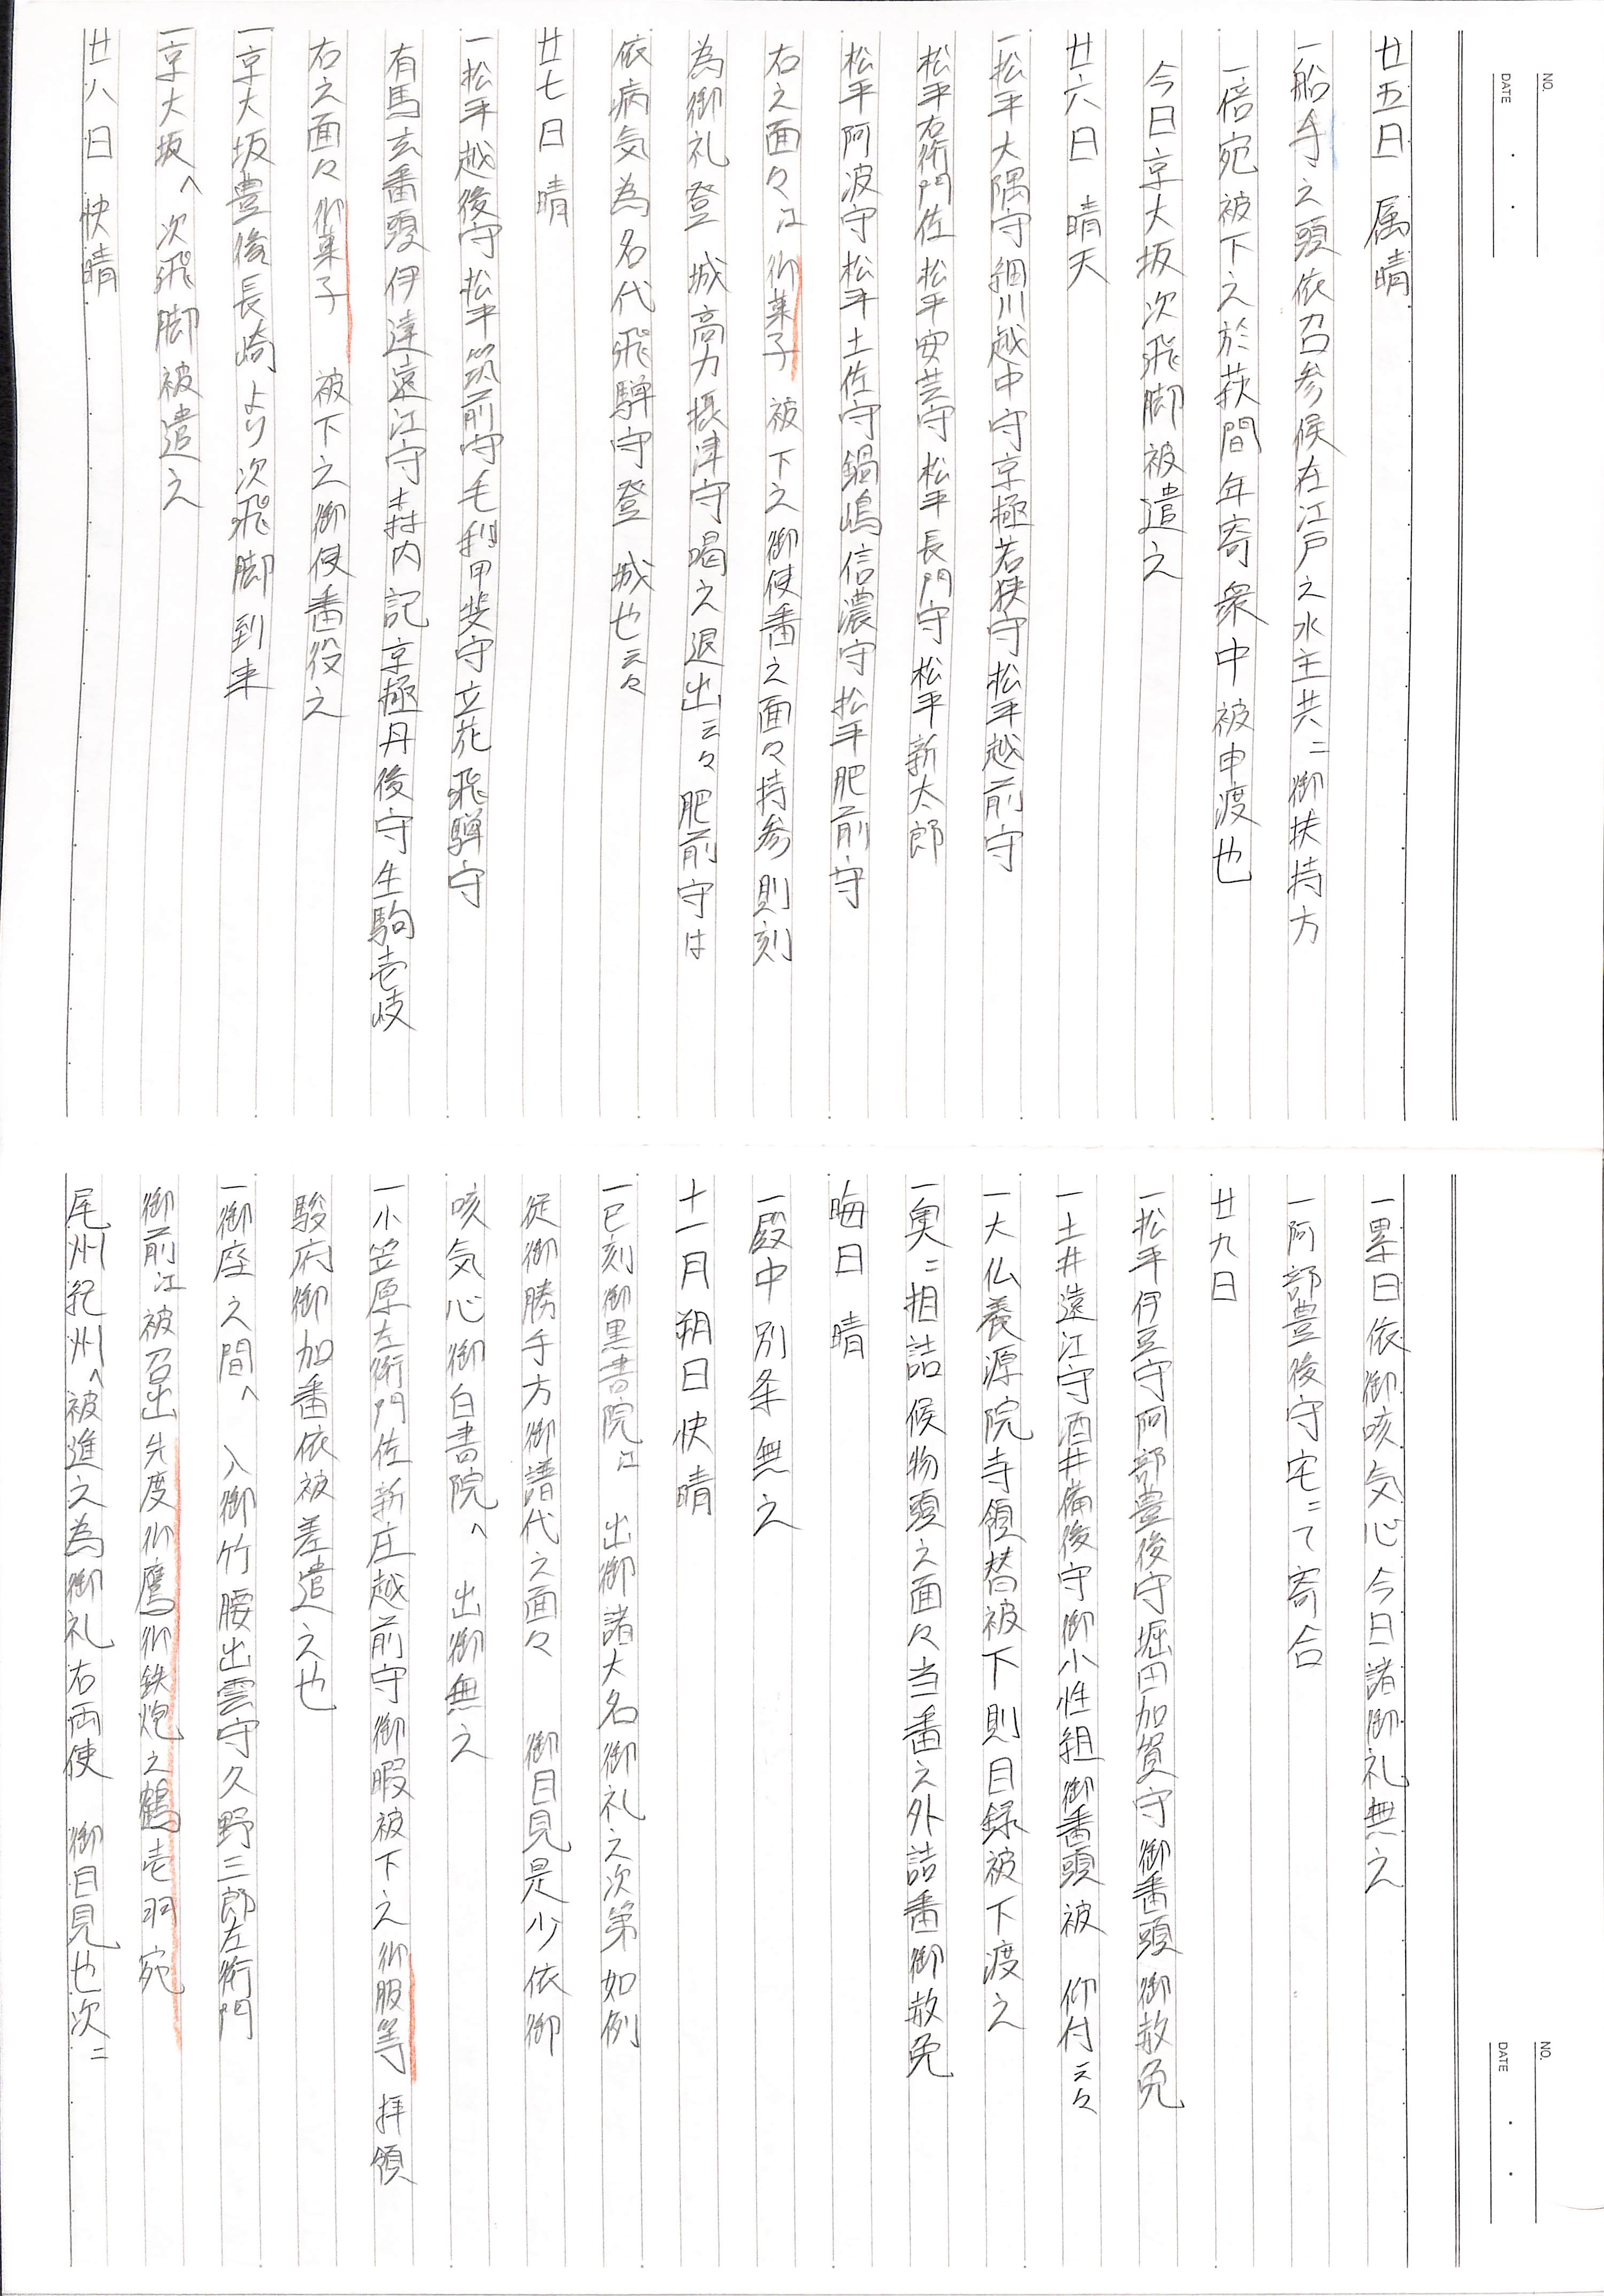 NO.
DATE
廿五日 属晴
一船手之頭依召参候在江戸之水主共ニ御扶持方
一倍宛被下之於萩間年寄衆中被申渡也
今日京大坂次飛脚被遣之
廿六日 晴天
一松平大隅守細川越中守京極若狭守松平越前守
松平右衛門佐松平安芸守松平長門守松平新太郎
松平阿波守松平土佐守鍋嶋信濃守松平肥前守
右之面々江御菓子被下之御使番之面々持参則刻
為御礼登 城高力摂津守謁之退出云々肥前守は
依病気為名代飛騨守登 城也云々
廿七日 晴
一松平越後守松平筑前守毛利甲斐守立花飛騨守
有馬玄番頭伊達遠江守森内記京極丹後守生駒壱岐
右之面々御菓子 被下之御使番役之
一京大坂豊後長崎より次飛脚到来
一京大坂へ次飛脚被遣之
廿八日 快晴
NO.
DATE
一累日依御咳気心今日諸御礼無之
一阿部豊後守宅ニて寄合
廿九日
一松平伊豆守阿部豊後守堀田加賀守御番頭御赦免
一土井遠江守酒井備後守御小性組御番頭被 仰付云々
一大仏養源院寺領替被下則目録被下渡之
一奥ニ相詰候物頭之面々当番之外詰番御赦免
晦日 晴
一殿中別条無之
十一月朔日快晴
一巳刻御黒書院江 出御諸大名御礼之次第如例
従御勝手方御譜代之面々 御目見是少依御
咳気心御白書院へ 出御無之
一小笠原左衛門佐新庄越前守御暇被下之御服等拝領
駿府御加番依被差遣之也
一御座之間へ 入御竹腰出雲守久野三郎左衛門
御前江被召出先度御鷹御鉄炮之鶴壱羽宛
尾州紀州へ被進之為御礼右両使 御目見也次ニ